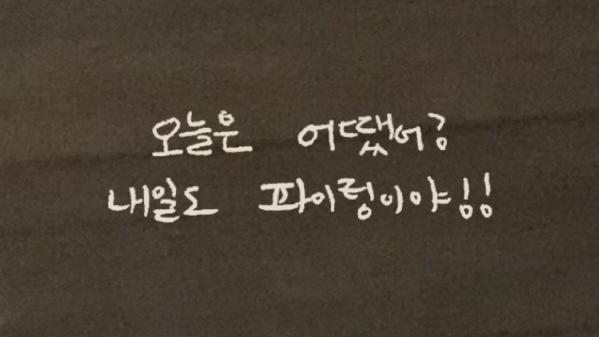 오늘은 어땠어?
내일도 파이렁이야!!